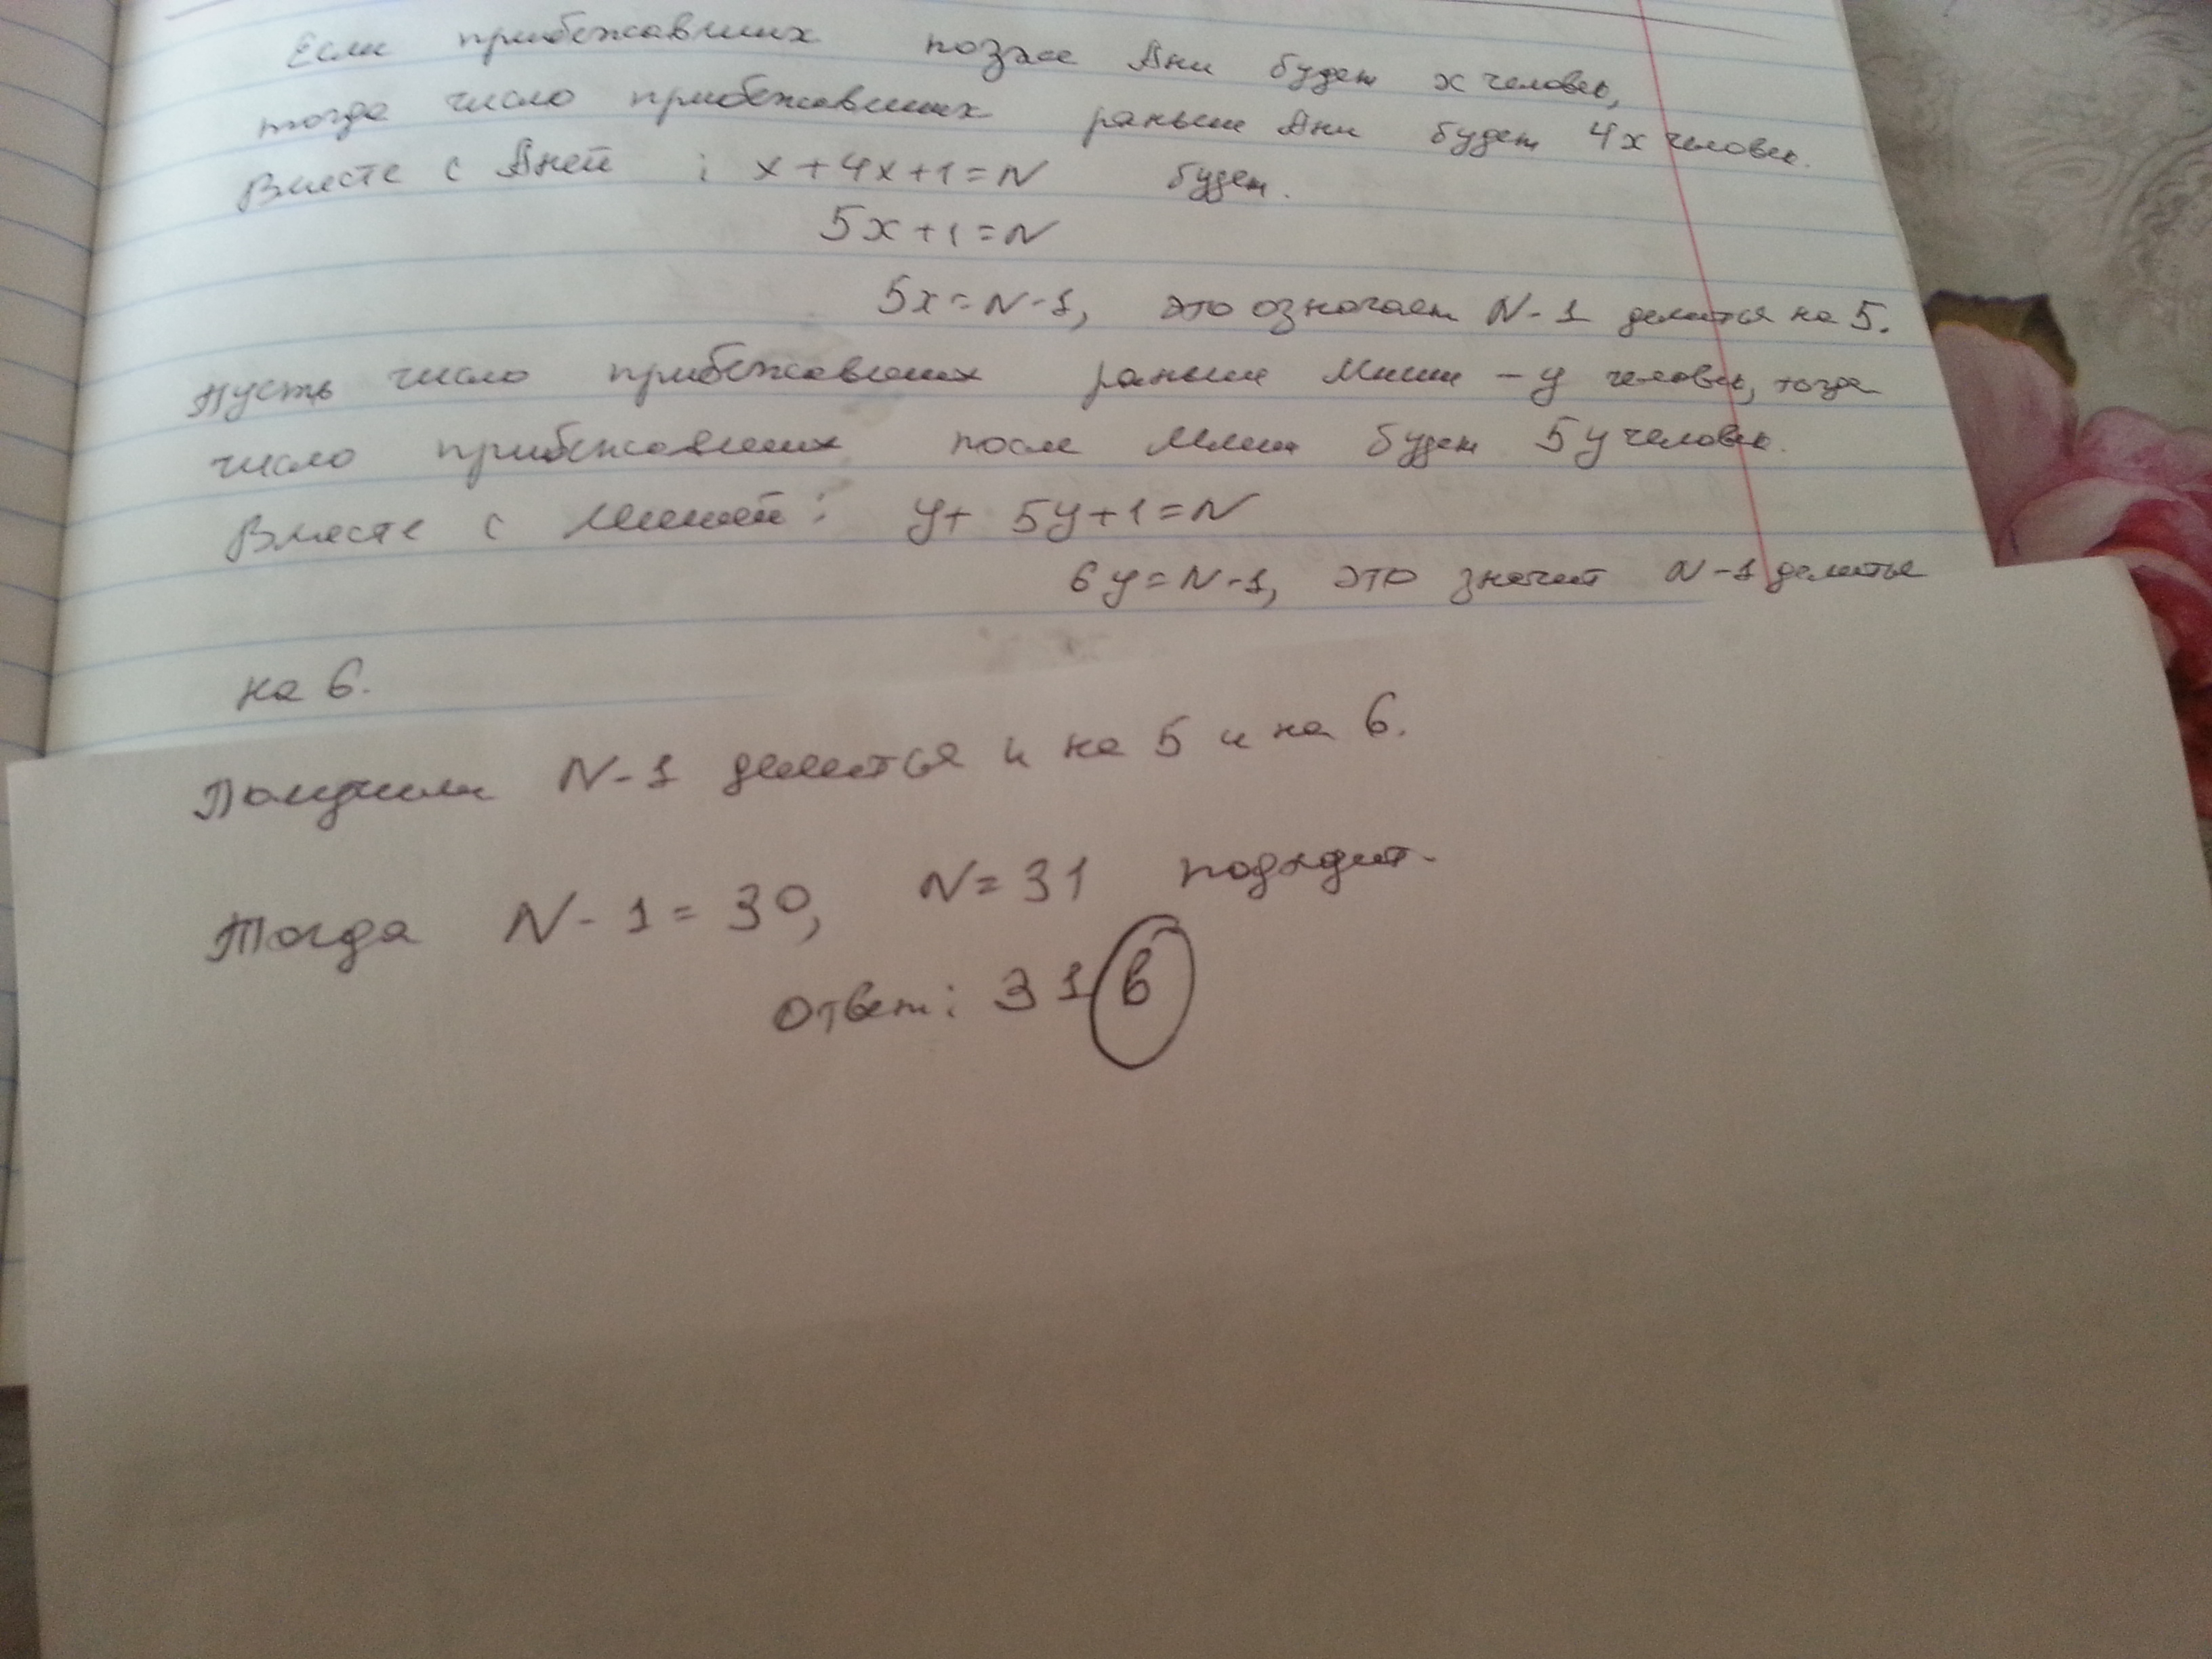 Если прибежавших позже Ани будет x человек,
тогда число прибежавших раньше Ани будет 4x человек.
Вместе с Аней ; x+4x+1=N будет.
5x+1=N
5x=N-1, это означает N-1 делится на 5.
Пусть число прибежавших раньше Миши - y человек, тогда
число прибежавших после Миши будет 5y человек.
Вместе с Мишей: y+ 5y+1=N
6y=N-1, это значит N-1 делится
на 6.
Получили N-1 делится и на 5 и на 6.
Тогда N-1=30, N=31 подходит.
Ответ: 31 в